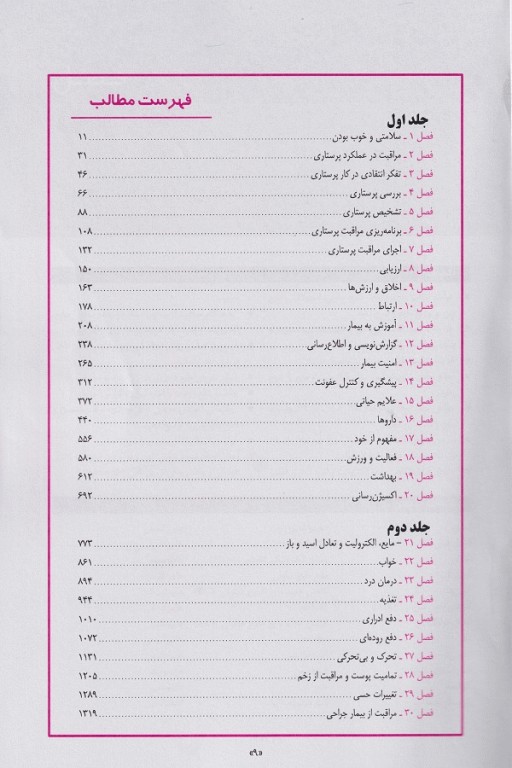 فهرست مطالب
جلد اول
فصل ۱ ـ سلامتی و خوب بودن ........ ۱۱
فصل ۲ ـ مراقبت در عملکرد پرستاری ........ ۳۱
فصل ۳ ـ تفکر انتقادی در کار پرستاری ........ ۴۶
فصل ۴ ـ بررسی پرستاری ........ ۶۶
فصل ۵ ـ تشخیص پرستاری ........ ۸۸
فصل ۶ ـ برنامه‌ریزی مراقبت پرستاری ........ ۱۰۸
فصل ۷ ـ اجرای مراقبت پرستاری ........ ۱۳۲
فصل ۸ ـ ارزیابی ........ ۱۵۰
فصل ۹ ـ اخلاق و ارزش‌ها ........ ۱۶۳
فصل ۱۰ ـ ارتباط ........ ۱۷۸
فصل ۱۱ ـ آموزش به بیمار ........ ۲۰۸
فصل ۱۲ ـ گزارش‌نویسی و اطلاع‌رسانی ........ ۲۳۸
فصل ۱۳ ـ امنیت بیمار ........ ۲۶۵
فصل ۱۴ ـ پیشگیری و کنترل عفونت ........ ۳۱۲
فصل ۱۵ ـ علایم حیاتی ........ ۳۷۲
فصل ۱۶ ـ داروها ........ ۴۴۰
فصل ۱۷ ـ مفهوم از خود ........ ۵۵۶
فصل ۱۸ ـ فعالیت و ورزش ........ ۵۸۰
فصل ۱۹ ـ بهداشت ........ ۶۱۲
فصل ۲۰ ـ اکسیژن‌رسانی ........ ۶۹۲
جلد دوم
فصل ۲۱ – مایع، الکترولیت و تعادل اسید و باز ........ ۷۷۳
فصل ۲۲ ـ خواب ........ ۸۶۱
فصل ۲۳ ـ درمان درد ........ ۸۹۴
فصل ۲۴ ـ تغذیه ........ ۹۴۴
فصل ۲۵ ـ دفع ادراری ........ ۱۰۱۰
فصل ۲۶ ـ دفع روده‌ای ........ ۱۰۷۲
فصل ۲۷ ـ تحرک و بی‌تحرکی ........ ۱۱۳۱
فصل ۲۸ ـ تمامیت پوست و مراقبت از زخم ........ ۱۲۰۵
فصل ۲۹ ـ تغییرات حسی ........ ۱۲۸۹
فصل ۳۰ ـ مراقبت از بیمار جراحی ........ ۱۳۱۹
«۹»